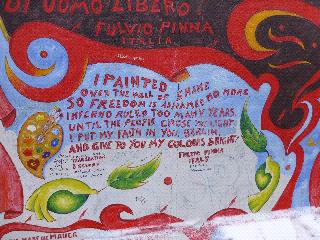 DI UOMO LIBERO!
FULVIO PINNA
ITALIA
I PAINTED
OVER THE WALL OF SHAME
SO FREEDOM IS ASHAMED NO MORE
INFERNO RULED TOO MANY YEARS
UNTIL THE PEOPLE CHOSE THE LIGHT
I PUT MY FAITH IN YOU, BERLIN,
AND GIVE TO YOU MY COLOURS BRIGHT
FULVIO PINNA
ITALY
TRANSLATION
MAUER